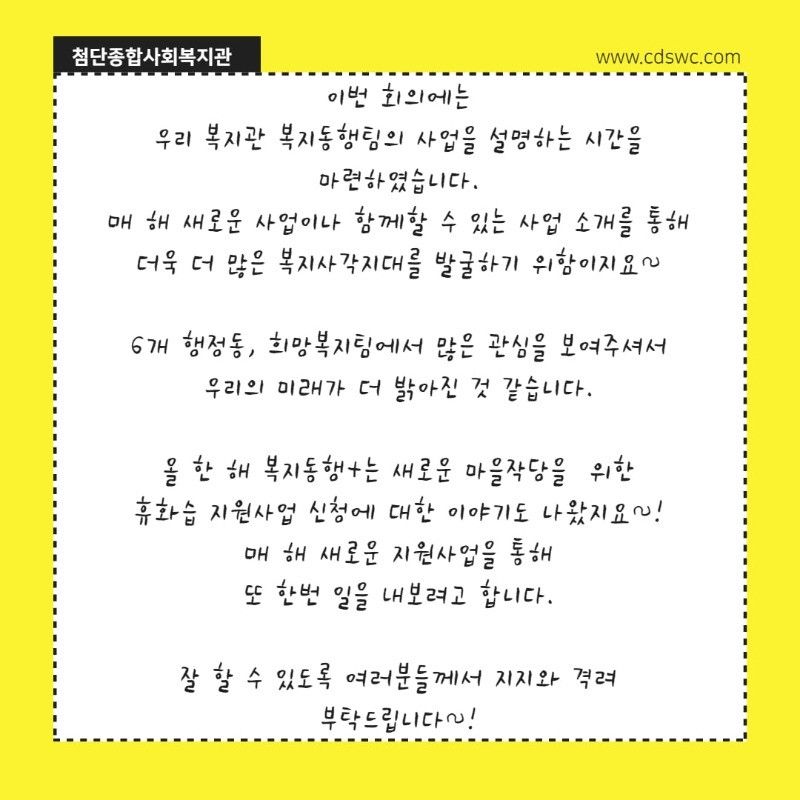 첨단종합사회복지관
www.cdswc.com
이번 회의에는
우리 복지관 복지동행팀의 사업을 설명하는 시간을
마련하였습니다.
매 해 새로운 사업이나 함께할 수 있는 사업 소개를 통해
더욱 더 많은 복지사각지대를 발굴하기 위함이지요~
6개 행정동, 희망복지팀에서 많은 관심을 보여주셔서
우리의 미래가 더 밝아진 것 같습니다.
올 한 해 복지동행+는 새로운 마을작당을 위한
휴화습 지원사업 신청에 대한 이야기도 나왔지요~!
매 해 새로운 지원사업을 통해
또 한번 일을 내보려고 합니다.
잘 할 수 있도록 여러분들께서 지지와 격려
부탁드립니다~!